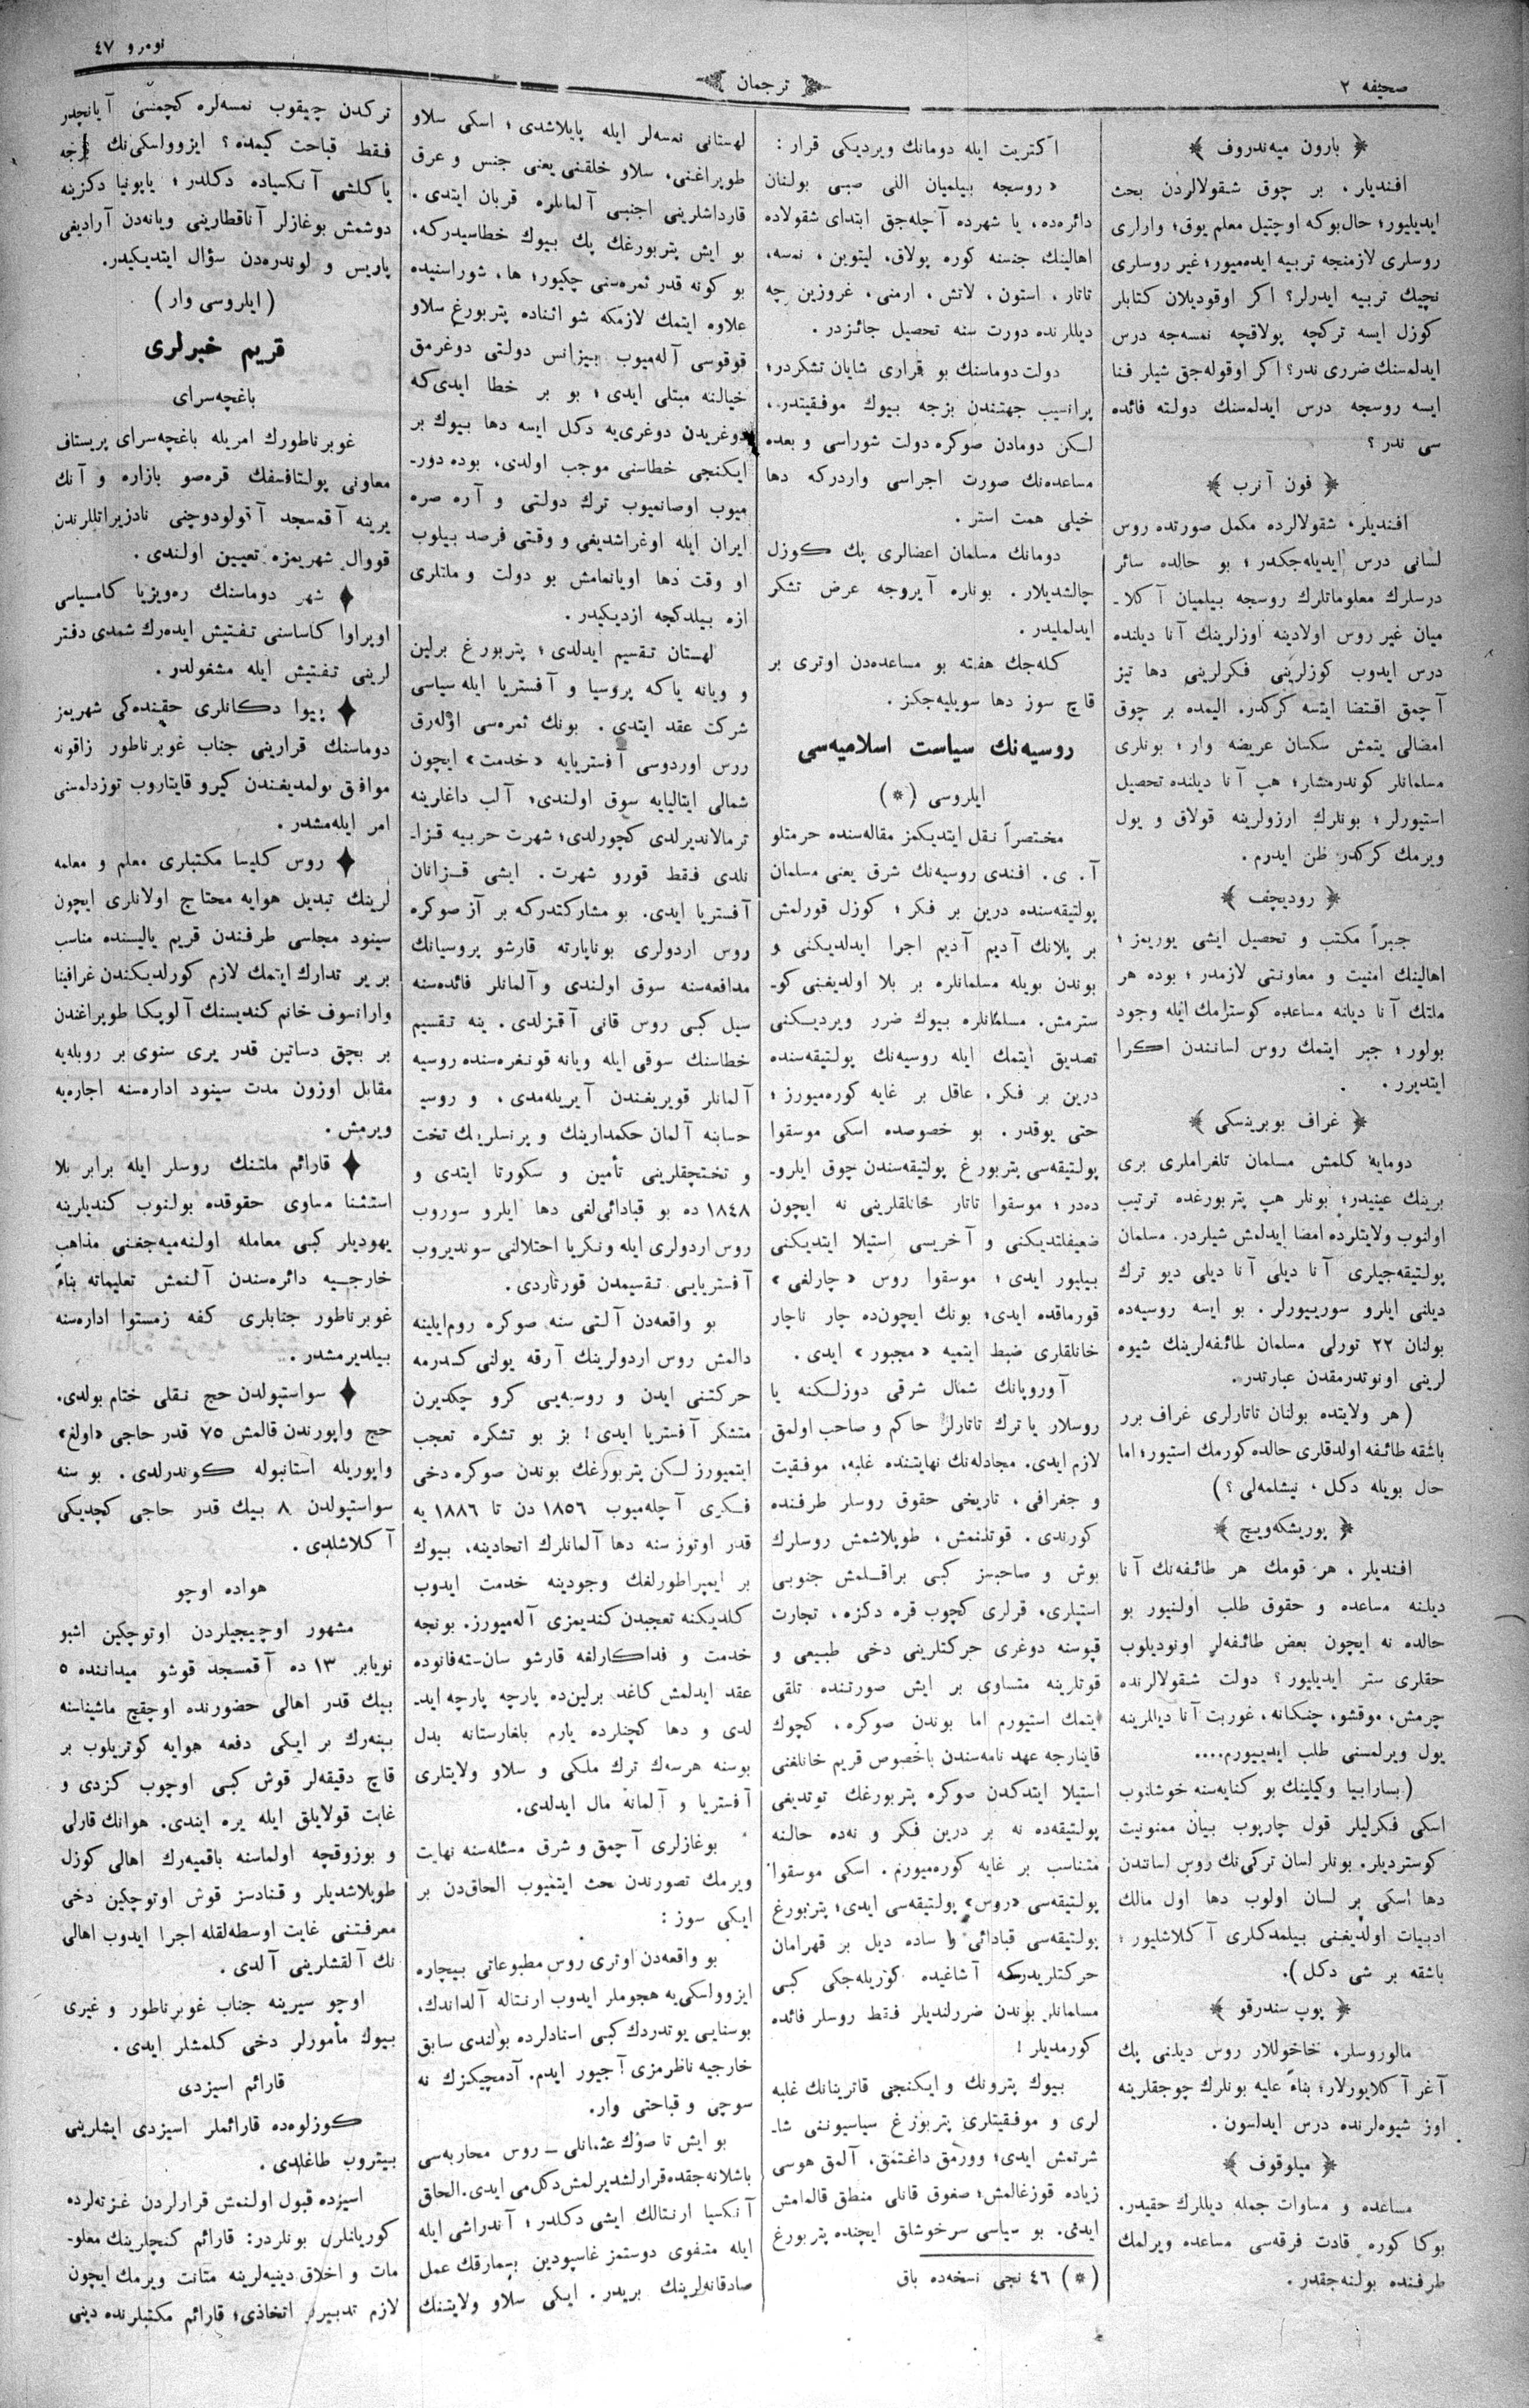 صحیفه ٢
ترجمان
نومرو ٤٧
بارون میەندروف
افندیلر، بر چوق شقولالردن بحث
ایدیلیور؛ حال‌بوكه اوچتیل معلم یوق؛ وارلری
روسلری لازمنجه تربیه ایده‌میور؛ غیر روسلری
نچیك تربیه ایدرلر؟ اكر اوقودیلان كتابلر
كوزل ایسه تركچه پولاقچه نمسه‌جه درس
ایدلمسنك ضرری ندر؟ اكر اوقوله‌جق شیلر فنا
ایسه روسچه درس ایدلمسنك دولته فائده
سی ندر ؟
فون آنرب
افندیلر، شقولالرده مكمل صورتده روس
لسانی درس ایدیله‌جكدر ؛ بو حالده سائر
درسلرك معلوماتلرك روسچه بیلمیان آكلا-
میان غیر روس اولادینه اوزلرینك آنا دیلنده
درس ایدوب كوزلرینی فكرلرینی دها تیز
آچمق اقتضا ایتسه كركدر. الیمده بر چوق
امضالی یتمش سكسان عریضه وار ؛ بونلری
مسلمانلر كوندرمشلر؛ هپ آنا دیلنده تحصیل
استیورلر؛ بونلرك ارزولرینه قولاق و یول
ویرمك كركدر ظن ایدرم.
رودیچف
جبراً مكتب و تحصیل ایشی یوریمز ؛
اهالینك امنیت و معاونتی لازمدر ؛ بوده هر
ملتك آنا دیانه مساعده كوسترمك ایله وجود
بولور ؛ جبر ایتمك روس لسانندن اكرا
ایتدیرر .
غراف بوبرینسكی
دومایه كلمش مسلمان تلغراملری بری
برینك عینیدر؛ بونلر هپ پتربورغده ترتیب
اولنوب ولایتلرده امضا ایدلمش شیلردر. مسلمان
پولتیقه‌جیلری آنا دیلی آنا دیلی دیو ترك
دیلنی ایلرو سوریورلر. بو ایسه روسیه‌ده
بولنان ٢٢ تورلی مسلمان طائفه‌لرینك شیوه
لرینی اونوتدرمقدن عبارتدر.
(هر ولایتده بولنان تاتارلری غراف برر
باشقه طائفه اولدقلری حالده كورمك استیور؛ اما
حال بویله دكل ، نیشلمه‌لی ؟)
پوریشكه‌ویچ
افندیلر ، هر قومك هر طائفه‌نك آنا
دیلنه مساعده و حقوق طلب اولنیور بو
حالده نه ایچون بعض طائفه‌لر اونودیلوب
حقلری ستر ایدیلیور ؟ دولت شقولالرنده
چرمش، موقشو، چنكانه، غوربت آنا دیللرینه
یول ویرلمسنی طلب ایدییورم....
(بسارابیا وكیلینك بو كنایه‌سنه خوشلنوب
اسكی فكرلیلر قول چارپوب بیان ممنونیت
كوستردیلر. بونلر لسان تركی‌نك روس لسانندن
دها اسكی بر لسان اولوب دها اول مالك
ادبیات اولدیغنی بیلمدكلری آكلاشلیور ؛
باشقه بر شی دكل).
پوپ سندرقو
مالوروسلر، خاخوللار روس دیلنی پك
آغر آكلایورلار؛ بناءً علیه بونلرك چوجقلرینه
اوز شیوه‌لرنده درس ایدلسون .
میلوقوف
مساعده و مساوات جمله دیللرك حقیدر.
بوكا كوره قادت فرقه‌سی مساعده ویرلمك
طرفنده بولنه‌جقدر.
اكثریت ایله دومانك ویردیكی قرار :
«روسچه بیلمیان النی صبی بولنان
دائره‌ده، یا شهرده آچله‌جق ابتدای شقولاده
اهالینك جنسنه كوره پولاق، لیتوین ، نمسه،
تاتار ، استون ، لاتش ، ارمنی ، غروزین چه
دیللرنده دورت سنه تحصیل جائزدر .
دولت دوماسنك بو قراری شایان تشكردر؛
پرانسیب جهتندن بزجه بیوك موفقیتدر،
لكن دومادن صوكره دولت شوراسی و بعده
مساعده‌نك صورت اجراسی واردركه دها
خیلی همت استر .
دومانك مسلمان اعضالری پك كوزل
چالشدیلار. بونلره آیروجه عرض تشكر
ایدلملیدر .
كله‌جك هفته بو مساعده‌دن اوتری بر
قاچ سوز دها سویلیه‌جكز.
روسیه‌نك سیاست اسلامیه‌سی
ایلروسی (*)
مختصراً نقل ایتدیكمز مقاله‌سنده حرمتلو
آ. ی. افندی روسیه‌نك شرق یعنی مسلمان
پولتیقه‌سنده درین بر فكر ؛ كوزل قورلمش
بر پلانك آدیم آدیم اجرا ایدلدیكنی و
بوندن بویله مسلمانلره بر بلا اولدیغنی كو-
سترمش. مسلمانلره بیوك ضرر ویردیكنی
تصدیق ایتمك ایله روسیه‌نك پولتیقه‌سنده
درین بر فكر ، عاقل بر غایه كوره‌میورز ؛
حتی یوقدر. بو خصوصده اسكی موسقوا
پولتیقه‌سی پتربورغ پولتیقه‌سندن چوق ایلرو-
ده‌در ؛ موسقوا تاتار خانلقلرینی نه ایچون
ضعیفلتدیكنی و آخریسی استیلا ایتدیكنی
بیلیور ایدی ؛ موسقوا روس «چارلغی»
قورماقده ایدی؛ بونك ایچون‌ده چار ناچار
خانلقلری ضبط ایتمیه «مجبور» ایدی.
آوروپانك شمال شرقی دوزلكنه یا
روسلار یا ترك تاتارلر حاكم و صاحب اولمق
لازم ایدی. مجادله‌نك نهایتنده غلبه، موفقیت
و جغرافی ، تاریخی حقوق روسلر طرفنده
كورندی . قوتلنمش ، طوپلاشمش روسلرك
بوش و صاحبسز كبی براقلمش جنوبی
استپلری، قرلری كچوب قره دكزه، تجارت
قپوسنه دوغری حركتلرینی دخی طبیعی و
قوتلرینه متساوی بر ایش صورتنده تلقی
ایتمك استیورم اما بوندن صوكره، كچوك
قاینارجه عهد نامه‌سندن باخصوص قریم خانلغنی
استیلا ایتدكدن صوكره پتربورغك توتدیغی
پولتیقه‌ده نه بر درین فكر و نه‌ده حالنه
متناسب بر غایه كوره‌میورم. اسكی موسقوا
پولتیقه‌سی «روس» پولتیقه‌سی ایدی؛ پتربورغ
پولتیقه‌سی قبادائی ساده دیل بر قهرامان
حركتلریدركه آشاغیده كوریله‌جكی كبی
مسلمانلر بوندن ضررلندیلر فقط روسلر فائده
كورمدیلر !
بیوك پترونك و ایكنجی قاترینانك غلبه
لری و موفقیتلری پتربورغ سیاسیوننی شا-
شرتمش ایدی؛ وورمق داغتمق، آلمق هوسی
زیاده قوزغالمش؛ صغوق قانلی منطق قالمامش
ایدی. بو سیاسی سرخوشلق ایچنده پتربورغ
(*) ٤٦ نجی نسخه‌ده باق
لهستانی نمسه‌لر ایله پایلاشدی؛ اسكی سلاو
طوپراغنی، سلاو خلقنی یعنی جنس و عرق
قارداشلرینی اجنبی آلمانلره قربان ایتدی.
بو ایش پتربورغك پك بیوك خطاسیدركه،
بو كونه قدر ثمره‌سنی چكیور؛ ها، شوراسنیده
علاوه ایتمك لازمكه شو اثناده پتربورغ سلاو
قوقوسی آله‌میوب بیزانس دولتی دوغرمق
خیالنه مبتلی ایدی ؛ بو بر خطا ایدی‌كه
دوغریدن دوغری‌یه دكل ایسه دها بیوك بر
ایكنجی خطاسنی موجب اولدی، بوده دور-
میوب اوصانمیوب ترك دولتی و آره صره
ایران ایله اوغراشدیغی و وقتی فرصد بیلوب
او وقت دها اویانمامش بو دولت و ملتلری
ازه بیلدكچه ازدیكیدر.
لهستان تقسیم ایدلدی ؛ پتربورغ برلین
و ویانه یاكه پروسیا و آفستریا ایله سیاسی
شركت عقد ایتدی. بونك ثمره‌سی اوله‌رق
روس اوردوسی آفستریایه «خدمت» ایچون
شمالی ایتالیایه سوق اولندی؛ آلب داغلرینه
ترمالاندیرلدی كچورلدی؛ شهرت حربیه قزا-
نلدی فقط قورو شهرت. ایشی قزانان
آفستریا ایدی. بو مشاركتدركه بر آز صوكره
روس اردولری بوناپارته قارشو پروسیانك
مدافعه‌سنه سوق اولندی و آلمانلر فائده‌سنه
سیل كبی روس قانی آقزلدی. ینه تقسیم
خطاسنك سوقی ایله ویانه قونغره‌سنده روسیه
آلمانلر قویریغندن آیریله‌مدی ، و روسیه
حسابنه آلمان حكمدارینك و پرنسلرینك تخت
و تختچقلرینی تأمین و سكورتا ایتدی و
١٨٤٨ ده بو قبادائی‌لغی دها ایلرو سوروب
روس اردولری ایله ونكریا احتلالنی سوندیروب
آفستریایی تقسیمدن قورتاردی.
بو واقعه‌دن آلتی سنه صوكره روم‌ایلینه
دالمش روس اردولرینك آرقه یولنی كسدرمه
حركتنی ایدن و روسیه‌یی كرو چكدیرن
متشكر آفستریا ایدی! بز بو تشكره تعجب
ایتمیورز لكن پتربورغك بوندن صوكره دخی
فكری آچله‌میوب ١٨٥٦ دن تا ١٨٨٦ یه
قدر اوتوز سنه دها آلمانلرك اتحادینه، بیوك
بر ایمپراطورلغك وجودینه خدمت ایدوب
كلدیكنه تعجبدن كندیمزی آله‌میورز. بونجه
خدمت و فداكارلغه قارشو سان-ستەفانوده
عقد ایدلمش كاغد برلین‌ده پارچه پارچه اید-
لدی و دها كچنلرده یارم بلغارستانه بدل
بوسنه هرسك ترك ملكی و سلاو ولایتلری
آفستریا و آلمانه مال ایدلدی.
بوغازلری آچمق و شرق مسئله‌سنه نهایت
ویرمك تصورندن بحث ایتمیوب الحاق‌دن بر
ایكی سوز :
بو واقعه‌دن اوتری روس مطبوعاتی بیچاره
ایزوولسكی‌یه هجوملر ایدوب ارنتاله آلداندك،
بوسنایی یوتدردك كبی اسنادلرده بولندی سابق
خارجیه ناظرمزی آجیور ایدم. آدمچیكزك نه
سوچی و قباحتی وار.
بو ایش تا صوك عثمانلی – روس محاربه‌سی
باشلانه‌جقده قرارلشدیرلمش دكل‌می ایدی. الحاق
آنكسیا ارنتالك ایشی دكلدر ؛ آندراشی ایله
ایله متفوی دوستمز غاسپودین بیسمارقك عمل
صادقانه‌لرینك بریدر. ایكی سلاو ولایتنك
تركدن چیقوب نمسه‌لره كچمتسی آیانچدر
فقط قباحت كیمده؟ ایزوولسكی‌نك
یاكلشی آنكسیاده دكلدر؛ یاپونیا دكزینه
دوشمش بوغازلر آناقطارینی ویانه‌دن آرادیغی
پاریس و لوندره‌دن سؤال ایتدیكیدر.
(ایلروسی وار)
قریم خبرلری
باغچه‌سرای
غوبرناطورك امریله باغچه‌سرای پریستاف
معاونی پولتافسفك قره‌صو بازاره و آنك
یرینه آقمسجد آقولودوچنی نادزیراتللرندن
قووال شهریمزه تعیین اولندی.
شهر دوماسنك ره‌ویزیا كامسیاسی
اوپراوا كاساسنی تفتیش ایده‌رك شمدی دفتر
لرینی تفتیش ایله مشغولدر.
پیوا دكانلری حقنده‌كی شهریمز
دوماسنك قرارینی جناب غوبرناطور زاقونه
موافق بولمدیغندن كیرو قایتاروب توزدلمسنی
امر ایله‌مشدر.
روس كلیسا مكتبلری معلم و معلمه
لرینك تبدیل هوایه محتاج اولانلری ایچون
سینود مجلسی طرفندن قریم یالیسنده مناسب
بر یر تدارك ایتمك لازم كورلدیكندن غرافینا
وارانسوف خانم كندیسنك آلوپكا طوپراغندن
بر بچق دساتین قدر یری سنوی بر روبله‌یه
مقابل اوزون مدت سینود اداره‌سنه اجاره‌یه
ویرمش .
قارائم ملتنك روسلر ایله برابر بلا
استثنا مساوی حقوقده بولنوب كندیلرینه
یهودیلر كبی معامله اولنه‌میه‌جغنی مذاهب
خارجیه دائره‌سندن آلنمش تعلیماته بناءً
غوبرناطور جنابلری كفه زمستوا اداره‌سنه
بیلدیرمشدر.
سواستپولدن حج نقلی ختام بولدی.
حج واپورندن قالمش ٧٥ قدر حاجی «اولغ»
واپوریله استانبوله كوندرلدی. بو سنه
سواستپولدن ٨ بیك قدر حاجی كچدیكی
آكلاشلدی.
هواده اوچو
مشهور اوچیجیلردن اوتوچكین اشبو
نویابر ١٣ ده آقمسجد قوشو میداننده ٥
بیك قدر اهالی حضورنده اوچقچ ماشیناسنه
بینه‌رك بر ایكی دفعه هوایه كوتریلوب بر
قاچ دقیقه‌لر قوش كبی اوچوب كزدی و
غایت قولایلق ایله یره ایندی. هوانك قارلی
و بوزوقچه اولماسنه باقمیه‌رك اهالی كوزل
طوپلاشدیلر و قنادسز قوش اوتوچكین دخی
معرفتنی غایت اوسطه‌لقله اجرا ایدوب اهالی
نك آلقشلرینی آلدی.
اوچو سیرینه جناب غوبرناطور و غیری
بیوك مأمورلر دخی كلمشلر ایدی.
قارائم اسیزدی
كوزلوه‌ده قارائملر اسیزدی ایشلرینی
بیتروب طاغلدی.
اسیزده قبول اولنمش قرارلردن غزته‌لرده
كوریانلری بونلردر: قارائم كنچلرینك معلو-
مات و اخلاق دینیه‌لرینه متانت ویرمك ایچون
لازم تدبیرلر اتخاذی؛ قارائم مكتبلرنده دینی